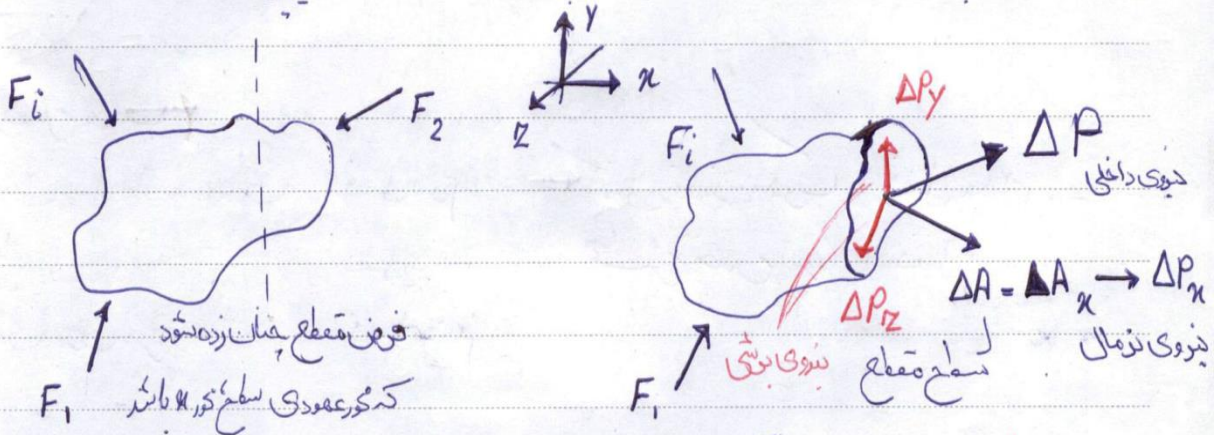 y
x
z
Fi
F2
F1
فرض مقطع چنان زده شود
که محور عمودی سطح محور x باشد
Fi
F1
ΔPy
ΔP
نیروی داخلی
ΔA = ΔAx → ΔPx
ΔPz
نیروی برشی
سطح مقطع
نیروی نرمال